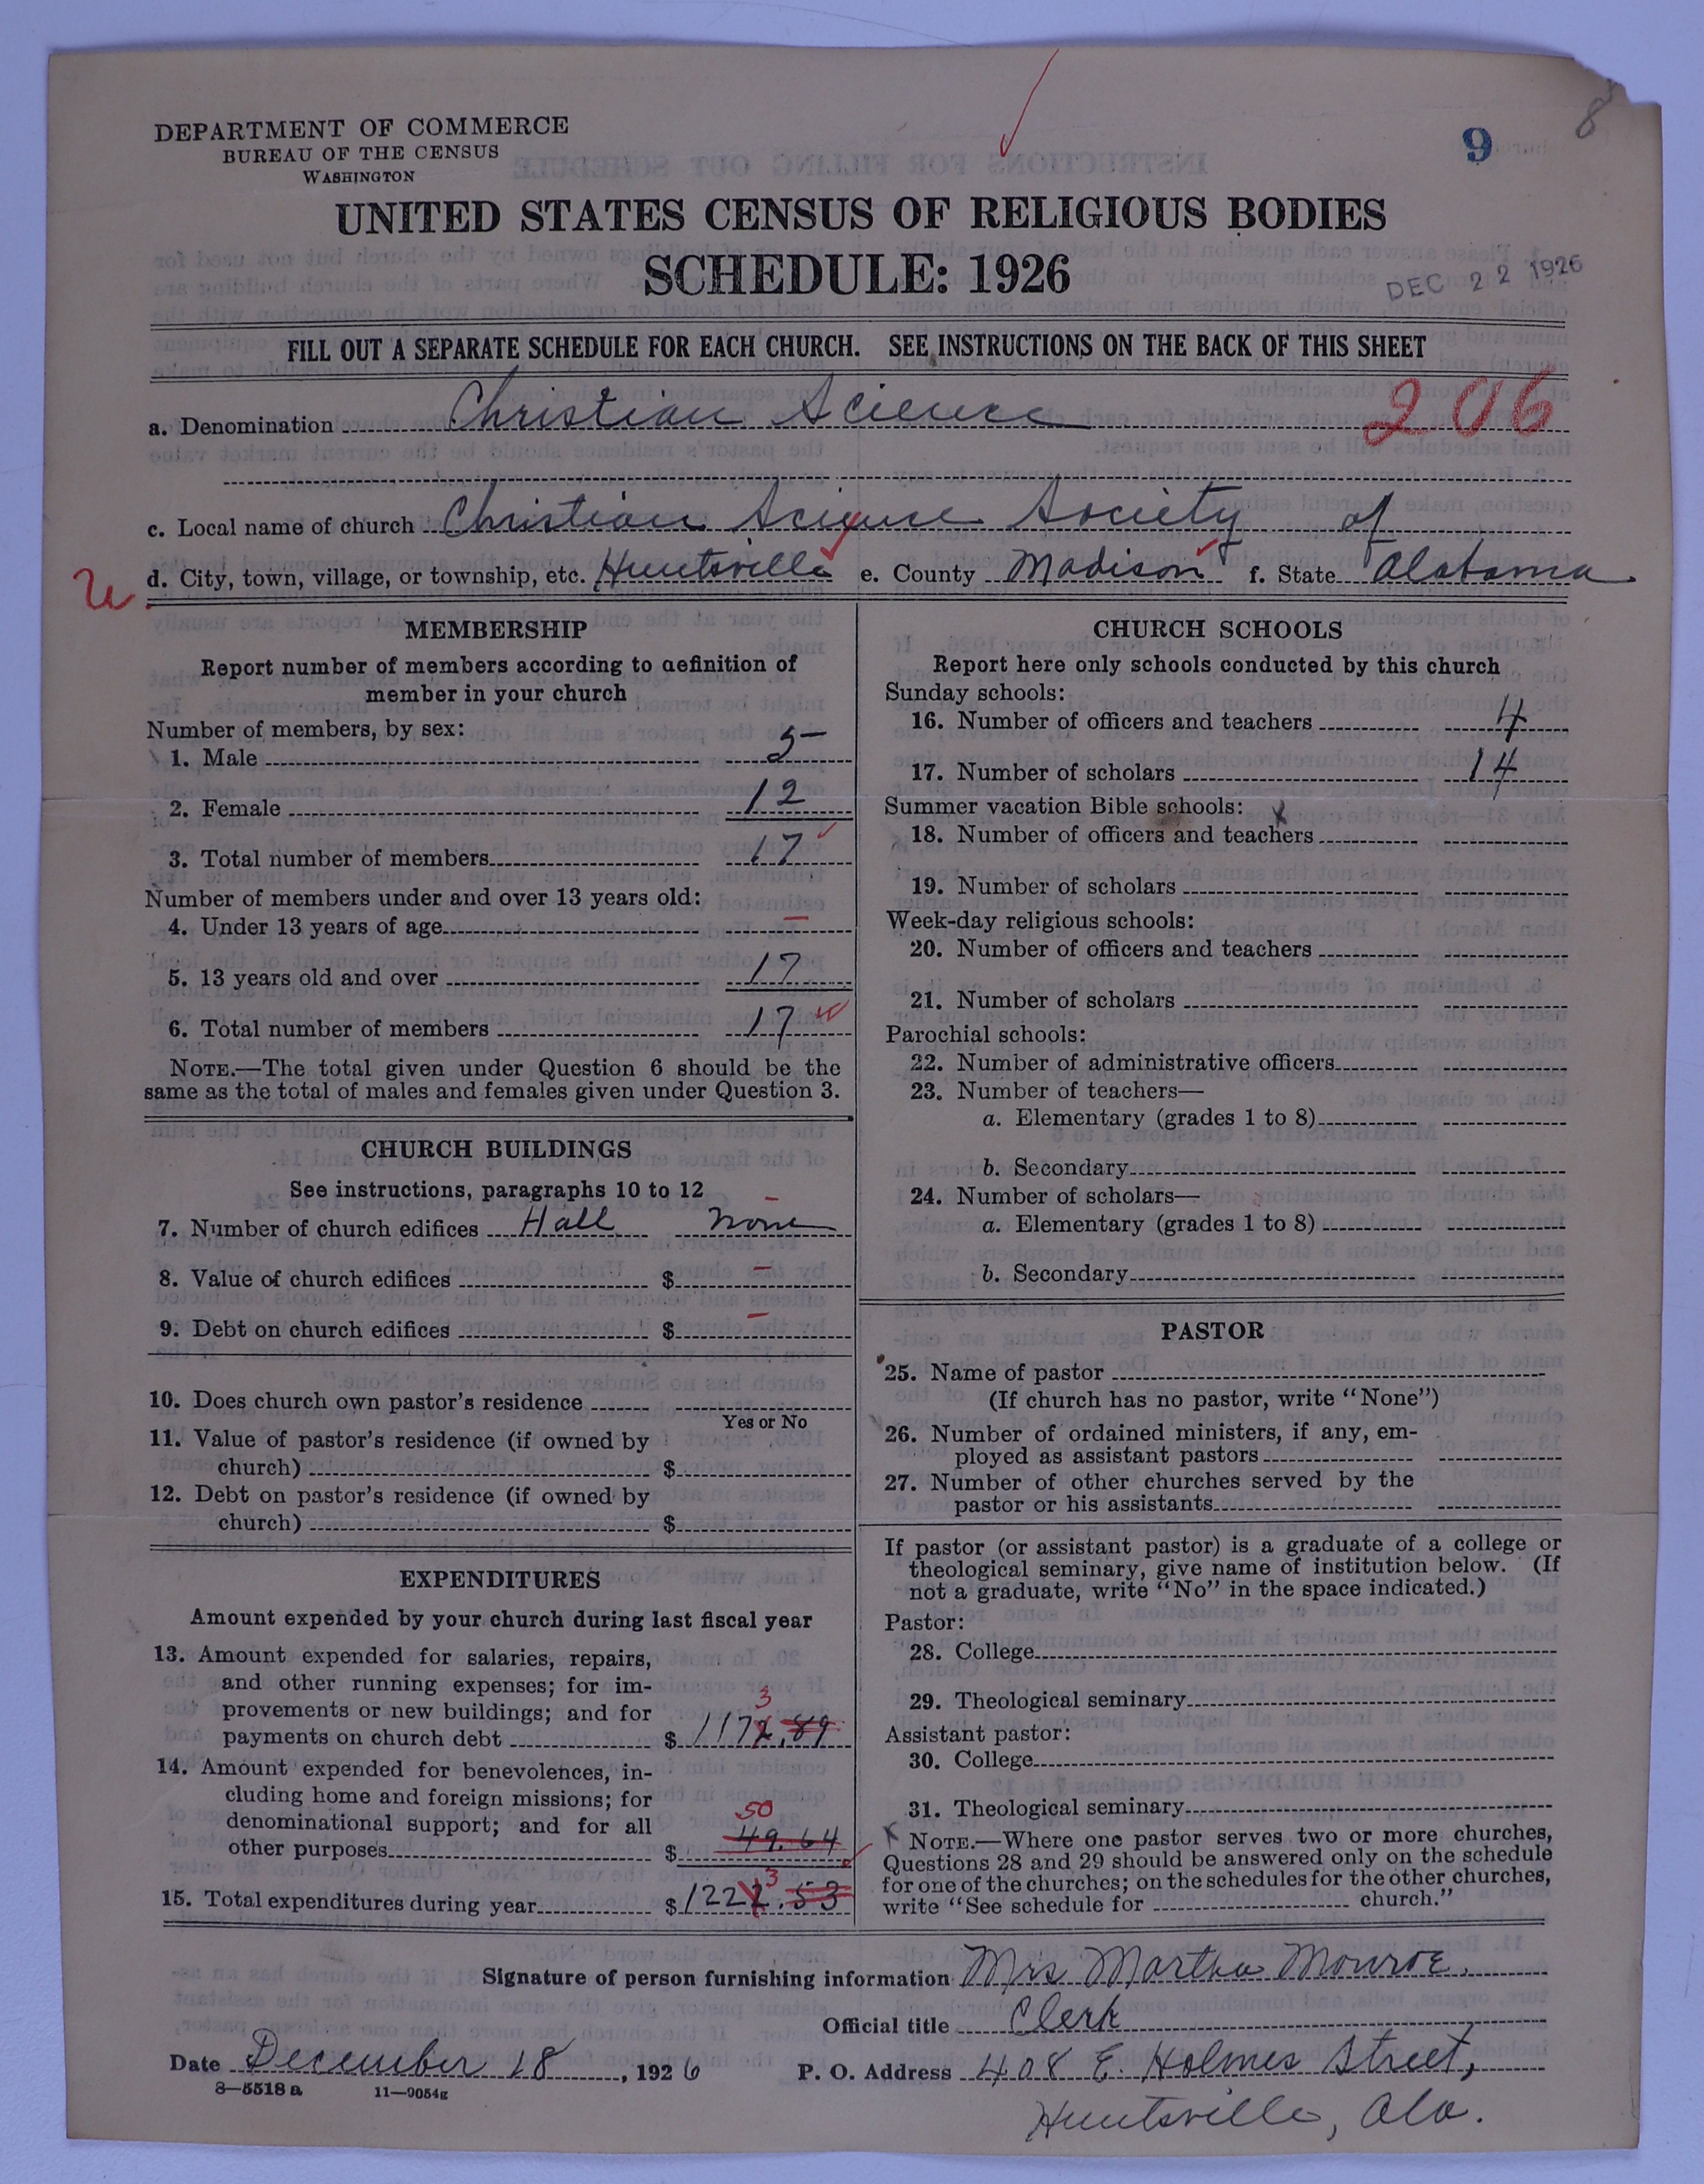 8
9
DEPARTMENT OF COMMERCE
BUREAU OF THE CENSUS
WASHINGTON
UNITED STATES CENSUS OF RELIGIOUS BODIES
SCHEDULE: 1926
DEC 22 1926
FILL OUT A SEPARATE SCHEDULE FOR EACH CHURCH. SEE INSTRUCTIONS ON THE BACK OF THIS SHEET
a. Denomination Christian Science 206
c. Local name of church Christian Science Society of
d. City, town, village, or township, etc. Huntsville e. County Madison f. State Alabama
MEMBERSHIP
Report number of members according to definition of
member in your church
Number of members, by sex:
1. Male 5
2. Female 12
3. Total number of members 17
Number of members under and over 13 years old:
4. Under 13 years of age –
5. 13 years old and over 17
6. Total number of members 17
NOTE.—The total given under Question 6 should be the
same as the total of males and females given under Question 3.
CHURCH BUILDINGS
See instructions, paragraphs 10 to 12
7. Number of church edifices Hall none
8. Value of church edifices $ –
9. Debt on church edifices $ –
10. Does church own pastor's residence
Yes or No
11. Value of pastor's residence (if owned by
church) $
12. Debt on pastor's residence (if owned by
church) $
EXPENDITURES
Amount expended by your church during last fiscal year
13. Amount expended for salaries, repairs,
and other running expenses; for im-
provements or new buildings; and for
3
payments on church debt $ 1172.89
14. Amount expended for benevolences, in-
cluding home and foreign missions; for
denominational support; and for all
50
other purposes $ 49.64
3
15. Total expenditures during year $ 1222.53
CHURCH SCHOOLS
Report here only schools conducted by this church
Sunday schools:
16. Number of officers and teachers 4
17. Number of scholars 14
Summer vacation Bible schools: x
18. Number of officers and teachers
19. Number of scholars
Week-day religious schools:
20. Number of officers and teachers
21. Number of scholars
Parochial schools:
22. Number of administrative officers
23. Number of teachers—
a. Elementary (grades 1 to 8)
b. Secondary
24. Number of scholars—
a. Elementary (grades 1 to 8)
b. Secondary
PASTOR
25. Name of pastor
(If church has no pastor, write "None")
26. Number of ordained ministers, if any, em-
ployed as assistant pastors
27. Number of other churches served by the
pastor or his assistants
If pastor (or assistant pastor) is a graduate of a college or
theological seminary, give name of institution below. (If
not a graduate, write "No" in the space indicated.)
Pastor:
28. College
29. Theological seminary
Assistant pastor:
30. College
31. Theological seminary
NOTE.—Where one pastor serves two or more churches,
Questions 28 and 29 should be answered only on the schedule
for one of the churches; on the schedules for the other churches,
write "See schedule for church."
Signature of person furnishing information Mrs Martha Monroe.
Official title Clerk
Date December 18, 1926 P. O. Address 408 E. Holmes Street,
8—5518 a 11—9054g
Huntsville, Ala.